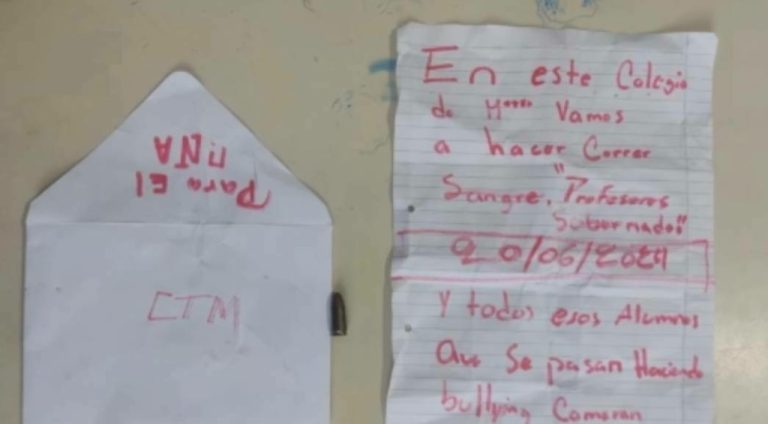 Para El
NiÑA
CTM
En este Colegio
de M**** Vamos
a hacer Correr
Sangre. "Profesores
Sobornados"
20/06/2024
Y todos esos Alumnos
Que Se pasan Haciendo
bullying Comeran